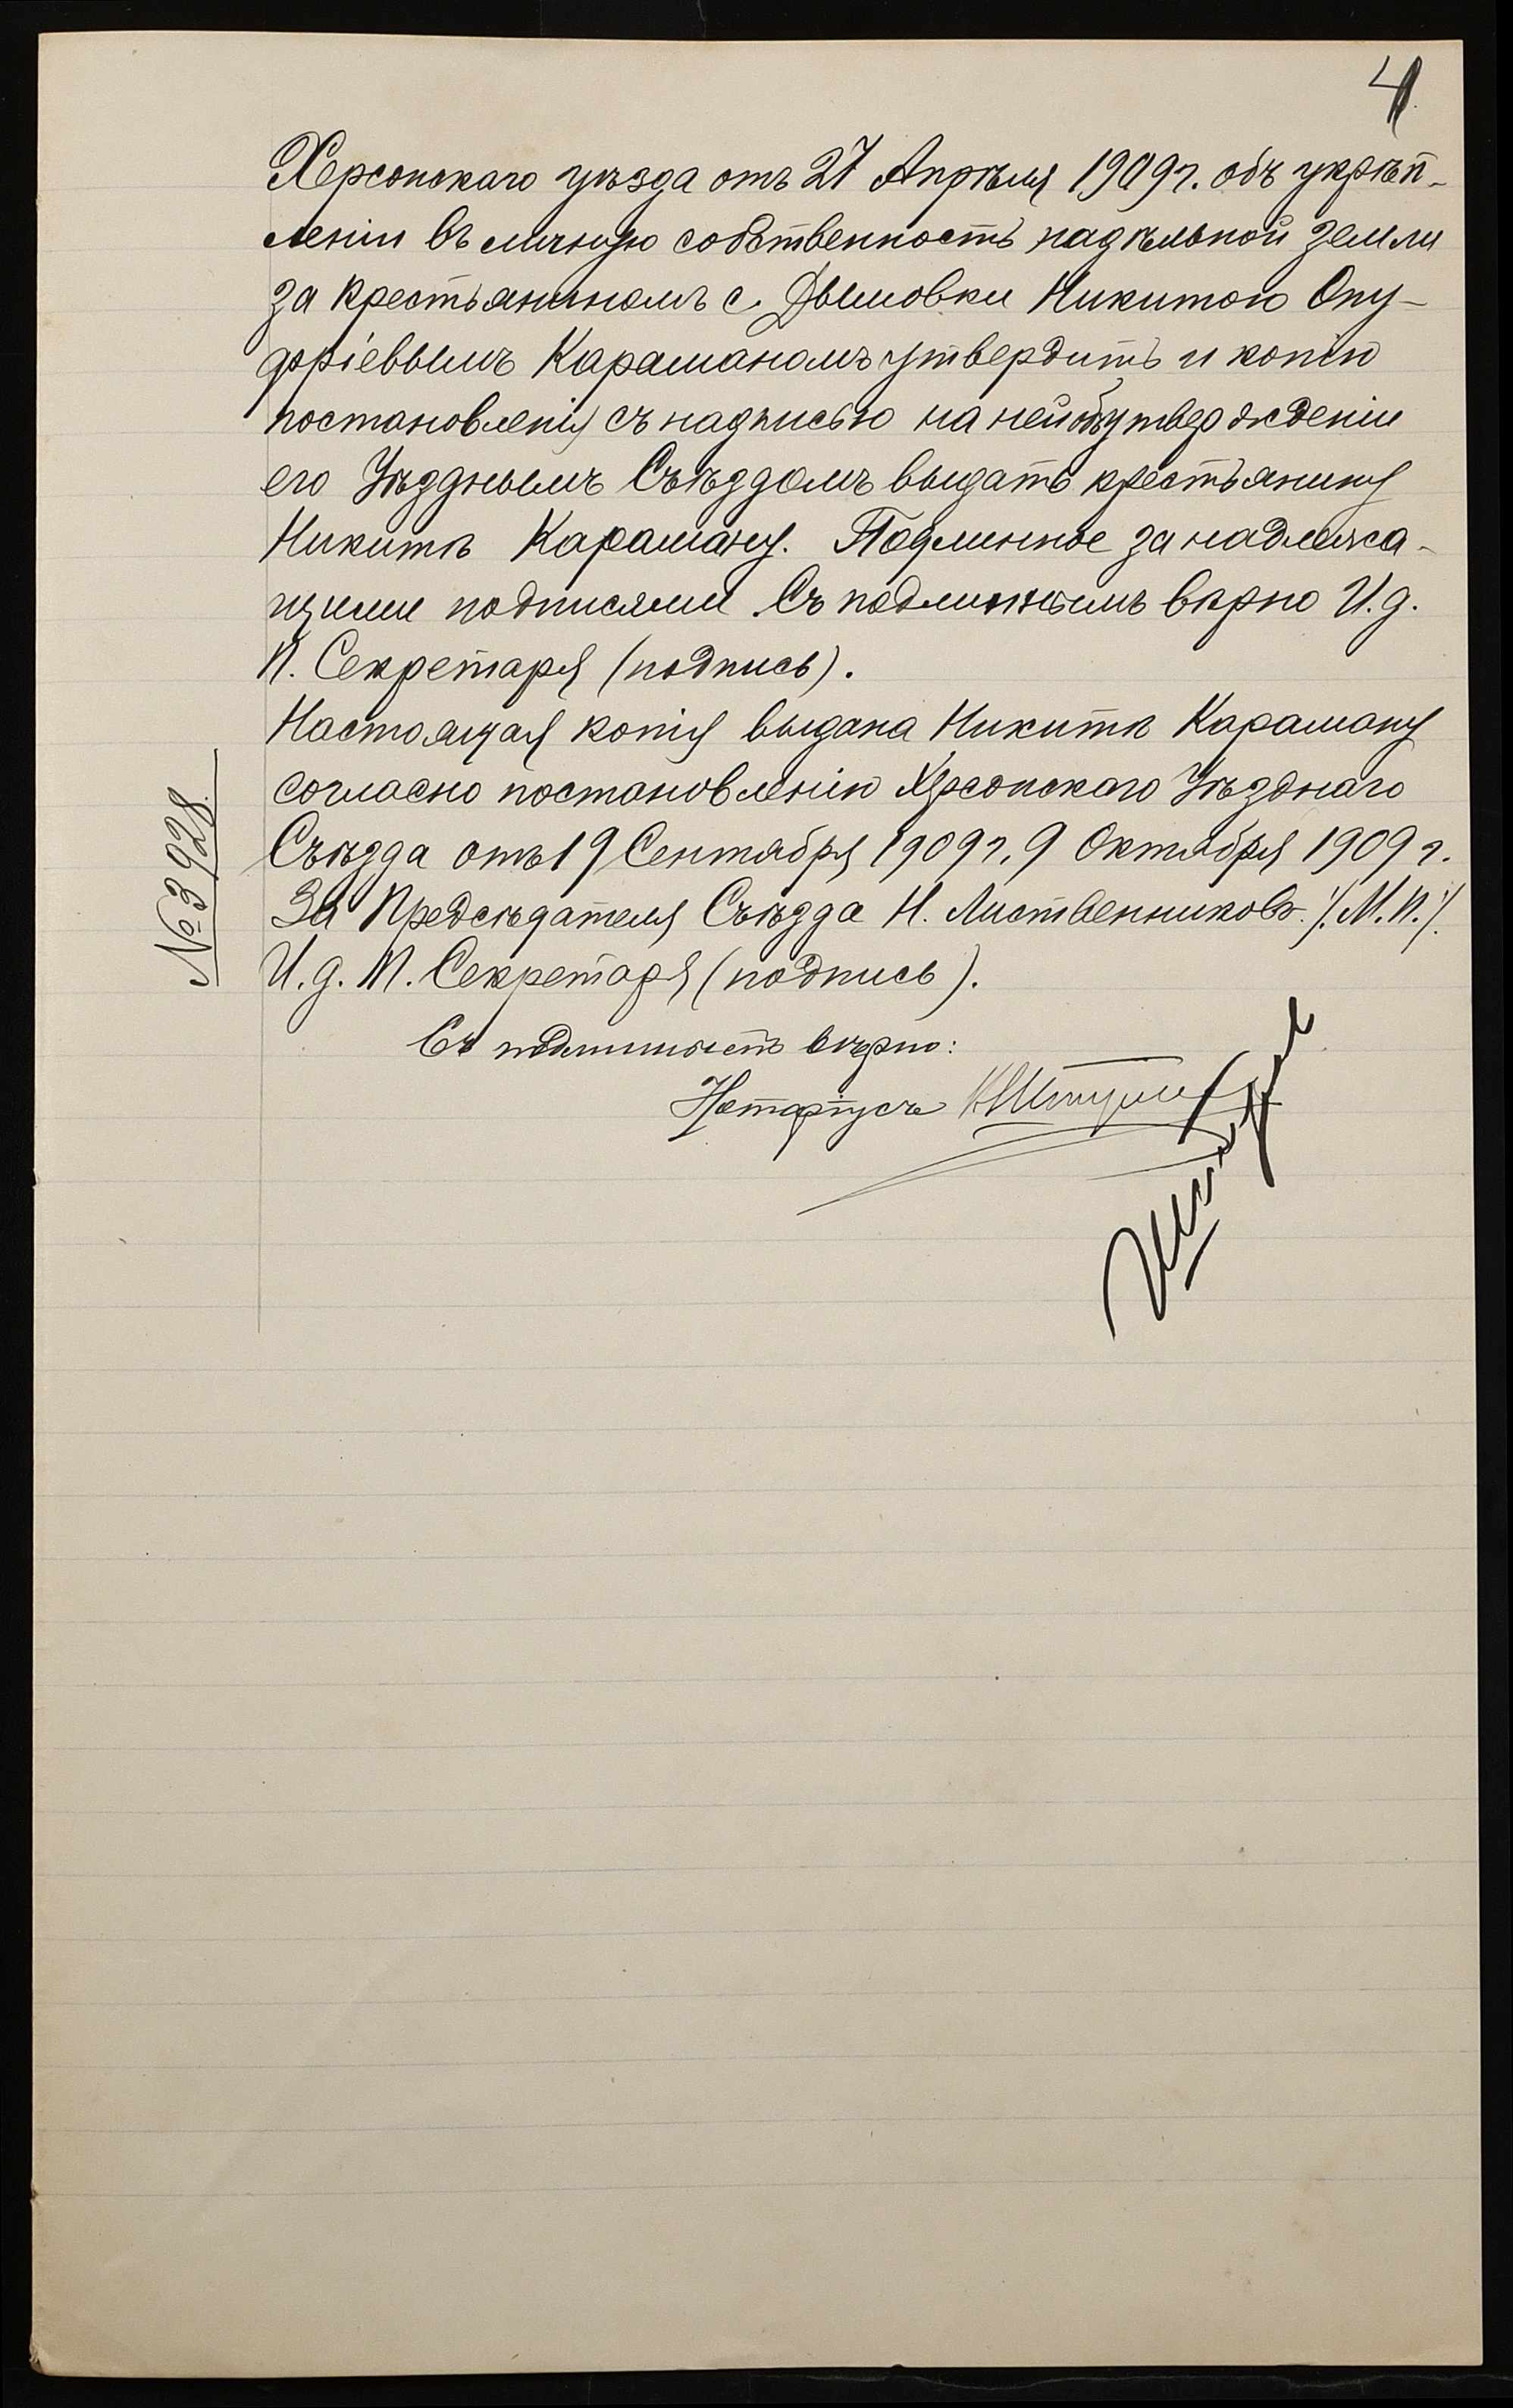 4
Херсонскаго уѣзда отъ 27 Апрѣля 1909 г. объ укрѣп-
леніи въ личную собственность надѣльной земли
за крестьяниномъ с. Дымовки Никитою Ону-
фріевымъ Караманомъ утвердить и копію
постановленія съ надписью на ней объ утвержденіи
его Уѣзднымъ Съѣздомъ выдать крестьянину
Никитѣ Караману. Подлинное за надлежа-
щими подписями. Съ подлиннымъ вѣрно И. д.
П. Секретаря (подпись).
Настоящая копія выдана Никитѣ Караману
согласно постановленію Херсонскаго Уѣзднаго
Съѣзда отъ 19 Сентября 1909 г. 9 Октября 1909 г.
За Предсѣдателя Съѣзда Н. Лиственниковъ. /М.П./.
И. д. П. Секретаря (подпись).
№ 3928.
Съ подлиннымъ вѣрно:
Нотаріусъ